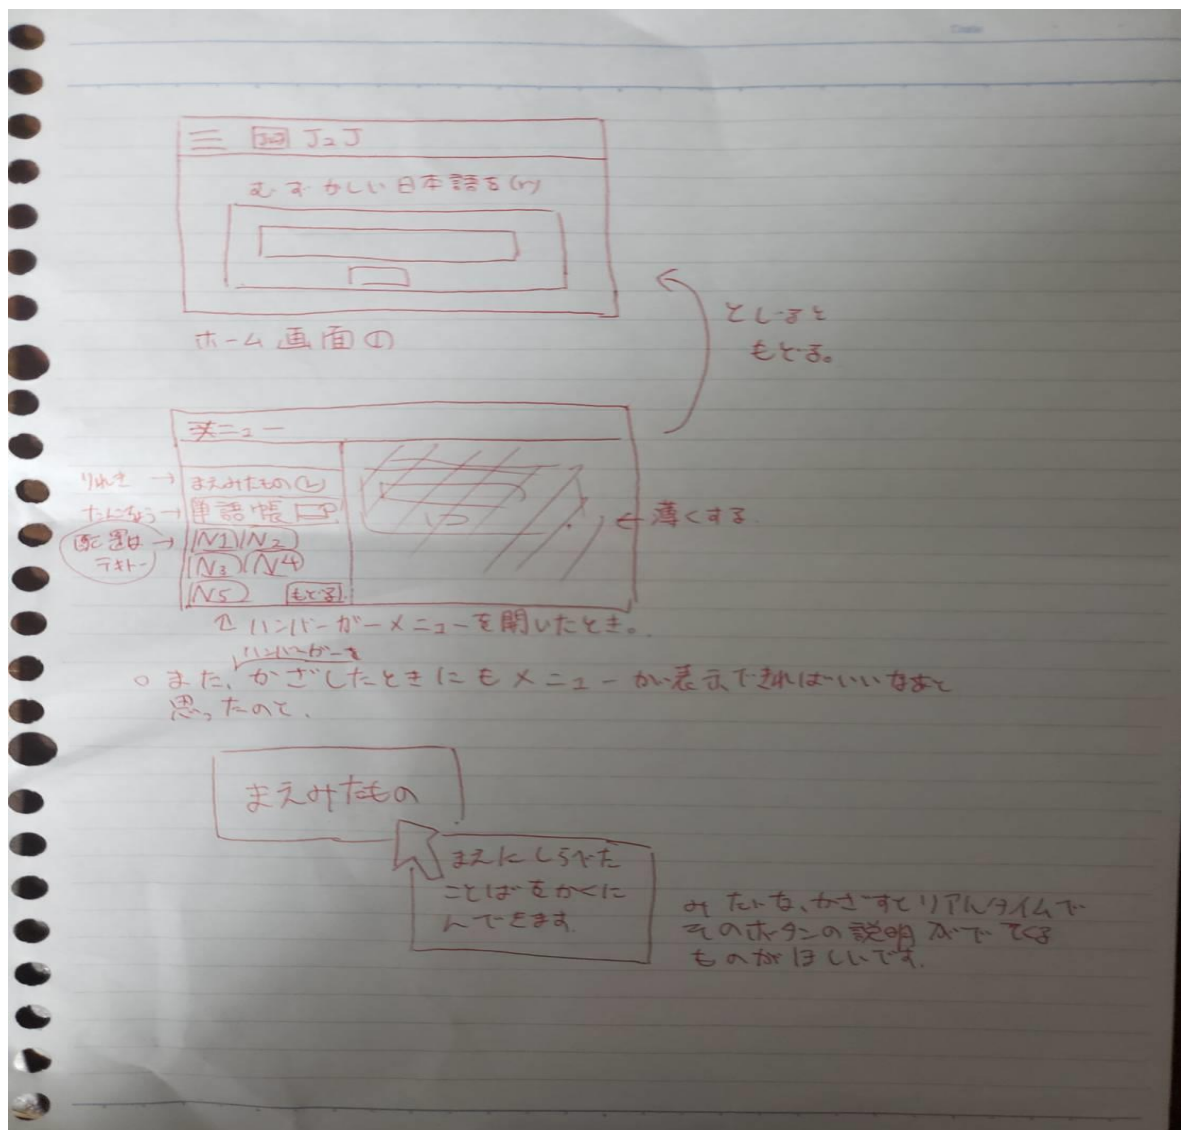 Date
J2J J2J
むずかしい日本語を(ry
ホーム画面①
とじると
もどる。
メニュー
りれき → まえみたもの
たんごちょう → 単語帳
配置は → N1 N2
テキトー N3 N4
N5 もどる
← 薄くする
ハンバーガーメニューを開いたとき。
ハンバーガーを
○ また、かざしたときにもメニューが表示できればいいなあと
思ったのと、
まえみたもの
まえにしらべた
ことばをかくに
んできます
みたいな、かざすとリアルタイムで
そのボタンの説明がでてくる
ものがほしいです。